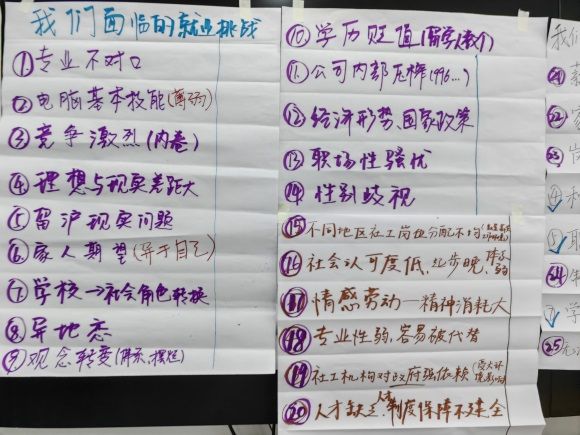 我们面临的就业挑战
①专业不对口
②电脑基本技能(薄弱)
③竞争激烈(内卷)
④理想与现实差距大
⑤留沪现实问题
⑥家人期望(异于自己)
⑦学校→社会角色转换
⑧异地恋
⑨观念转变(佛系、摆烂)
⑩学历贬值(留学
⑪公司内部压榨(996...)
⑫经济形势、国家政策
⑬职场性骚扰
⑭性别歧视
⑮不同地区社工岗位分配不均
⑯社会认可度低、起步晚、
⑰情感劳动—精神消耗大
⑱专业性弱,容易被代替
⑲社工机构对政府强依赖(受大环境影响)
⑳人才缺乏,人才制度保障不健全
我们
㉑
㉒
㉓
④
⑤
㉔
⑦学
㉕